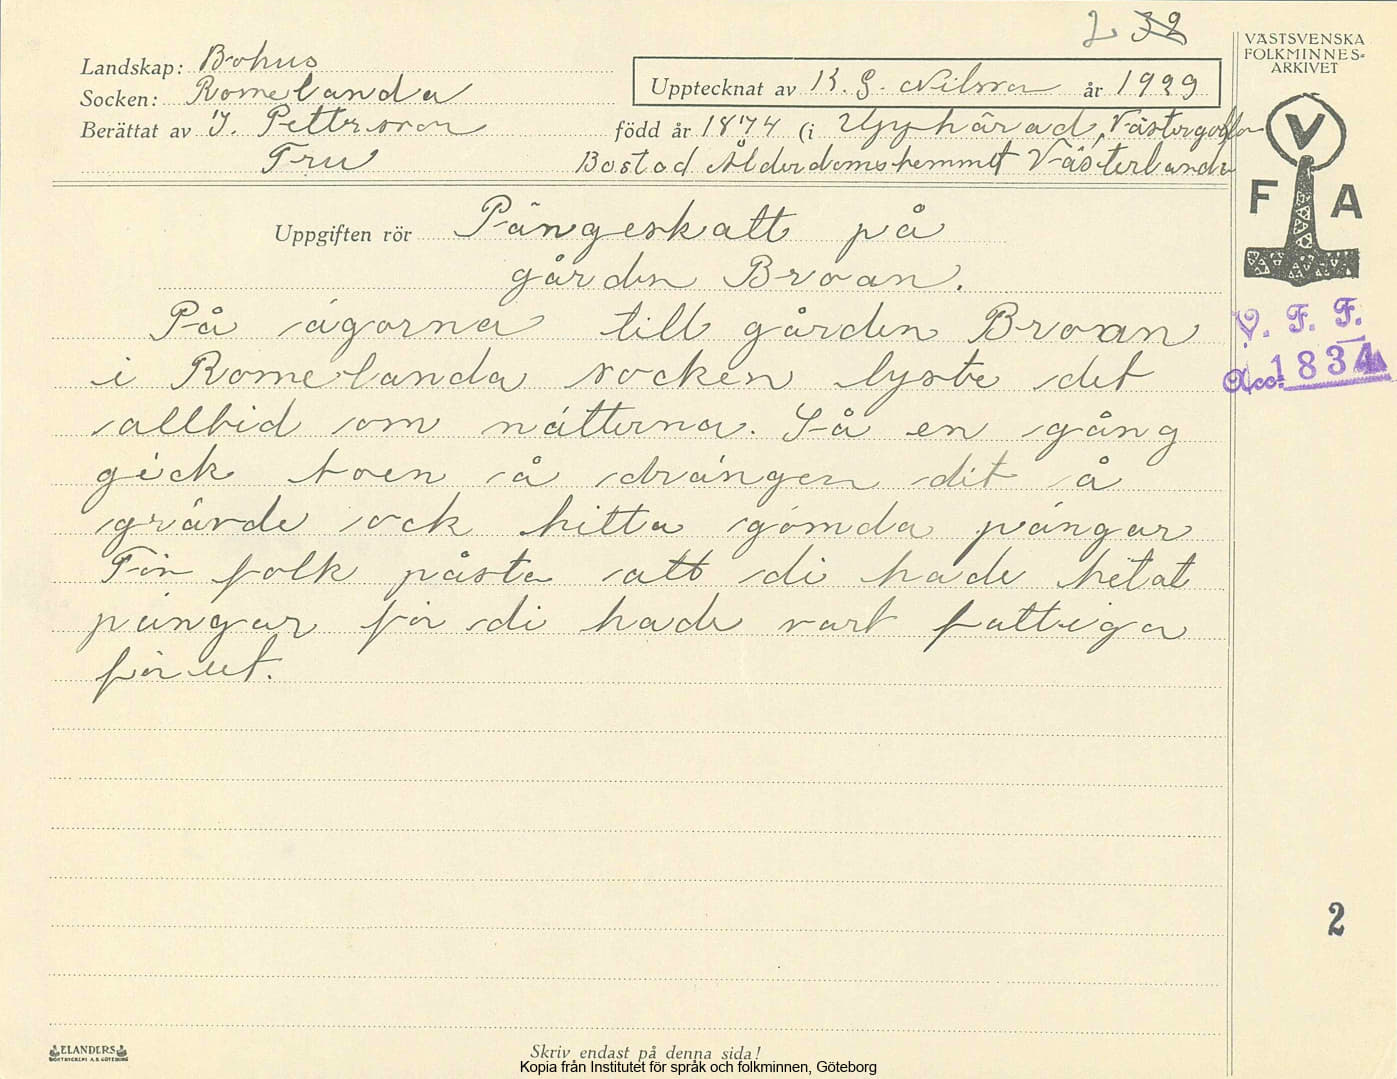 2 32
VÄSTSVENSKA
FOLKMINNES-
ARKIVET
Landskap: Bohus
Socken: Romelanda
Upptecknat av K. G. Nilsson år 1929
Berättat av J. Pettersson
född år 1874 (i Upphärad, Västergötlan
Fru
Bostad Ålderdomshemmet Västerlanda
V
F A
Uppgiften rör Pängeskatt på
gården Broan.
På ägorna till gården Broan
i Romelanda socken lyste det
alltid om nätterna. Så en gång
gick töen å drängen dit å
grävde ock hitta gömda pängar
För folk påsta att di hade hetat
pängar för di hade vart fattiga
förut.
V. F. F.
Acc. 1834
2
ELANDERS
BOKTRYCKERI A.B. GÖTEBORG
Skriv endast på denna sida!
Kopia från Institutet för språk och folkminnen, Göteborg